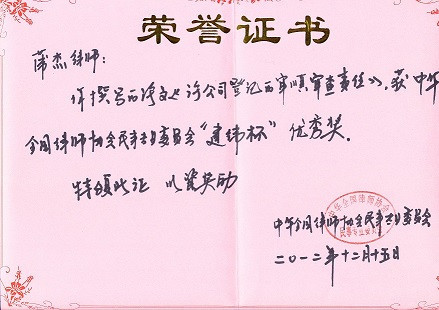 荣誉证书
蒲杰律师：
你撰写的论文《论公司登记的审慎审查责任》，获中华
全国律师协会民事专业委员会“建纬杯”优秀奖。
特颁此证 以资奖励
中华全国律师协会民事专业委员会
二〇一二年十二月十五日